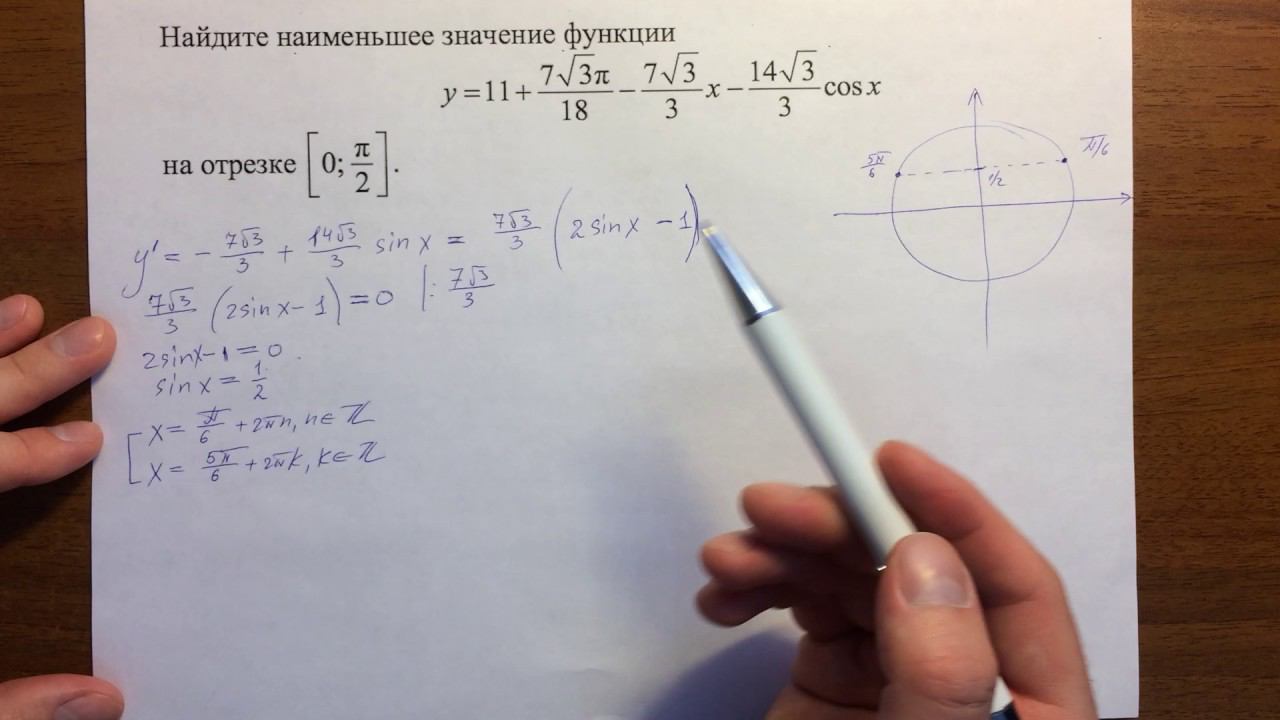 Найдите наименьшее значение функции
y = 11 + 7√3π/18 − 7√3/3 x − 14√3/3 cos x
на отрезке [0; π/2].
y' = − 7√3/3 + 14√3/3 sin x = 7√3/3 (2 sin x − 1)
7√3/3 (2 sin x − 1) = 0 | : 7√3/3
2 sin x − 1 = 0
sin x = 1/2
[ x = π/6 + 2πn, n ∈ ℤ
x = 5π/6 + 2πk, k ∈ ℤ
5π/6
π/6
1/2